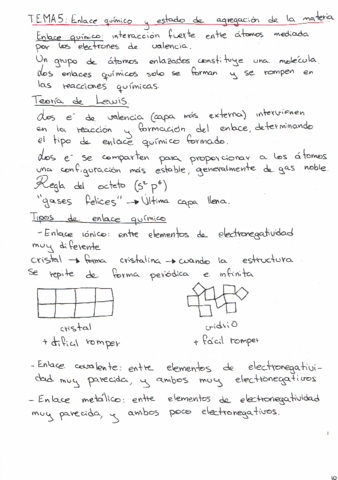 TEMA 5: Enlace químico y estado de agregación de la materia
Enlace químico: interacción fuerte entre átomos mediada
por los electrones de valencia.
Un grupo de átomos enlazados constituye una molécula
Los enlaces químicos solo se forman y se rompen en
las reacciones químicas.
Teoría de Lewis
Los e⁻ de valencia (capa más externa) intervienen
en la reacción y formación del enlace, determinando
el tipo de enlace químico formado.
Los e⁻ se comparten para proporcionar a los átomos
una configuración más estable, generalmente de gas noble.
Regla del octeto (s² p⁶)
"gases felices" → Última capa llena.
Tipos de enlace químico
- Enlace iónico: entre elementos de electronegatividad
muy diferente
cristal → forma cristalina → cuando la estructura
se repite de forma periódica e infinita
cristal
+ difícil romper
vidrio
+ fácil romper
- Enlace covalente: entre elementos de electronegativi-
dad muy parecida, y ambos muy electronegativos
- Enlace metálico: entre elementos de electronegatividad
muy parecida, y ambos poco electronegativos.